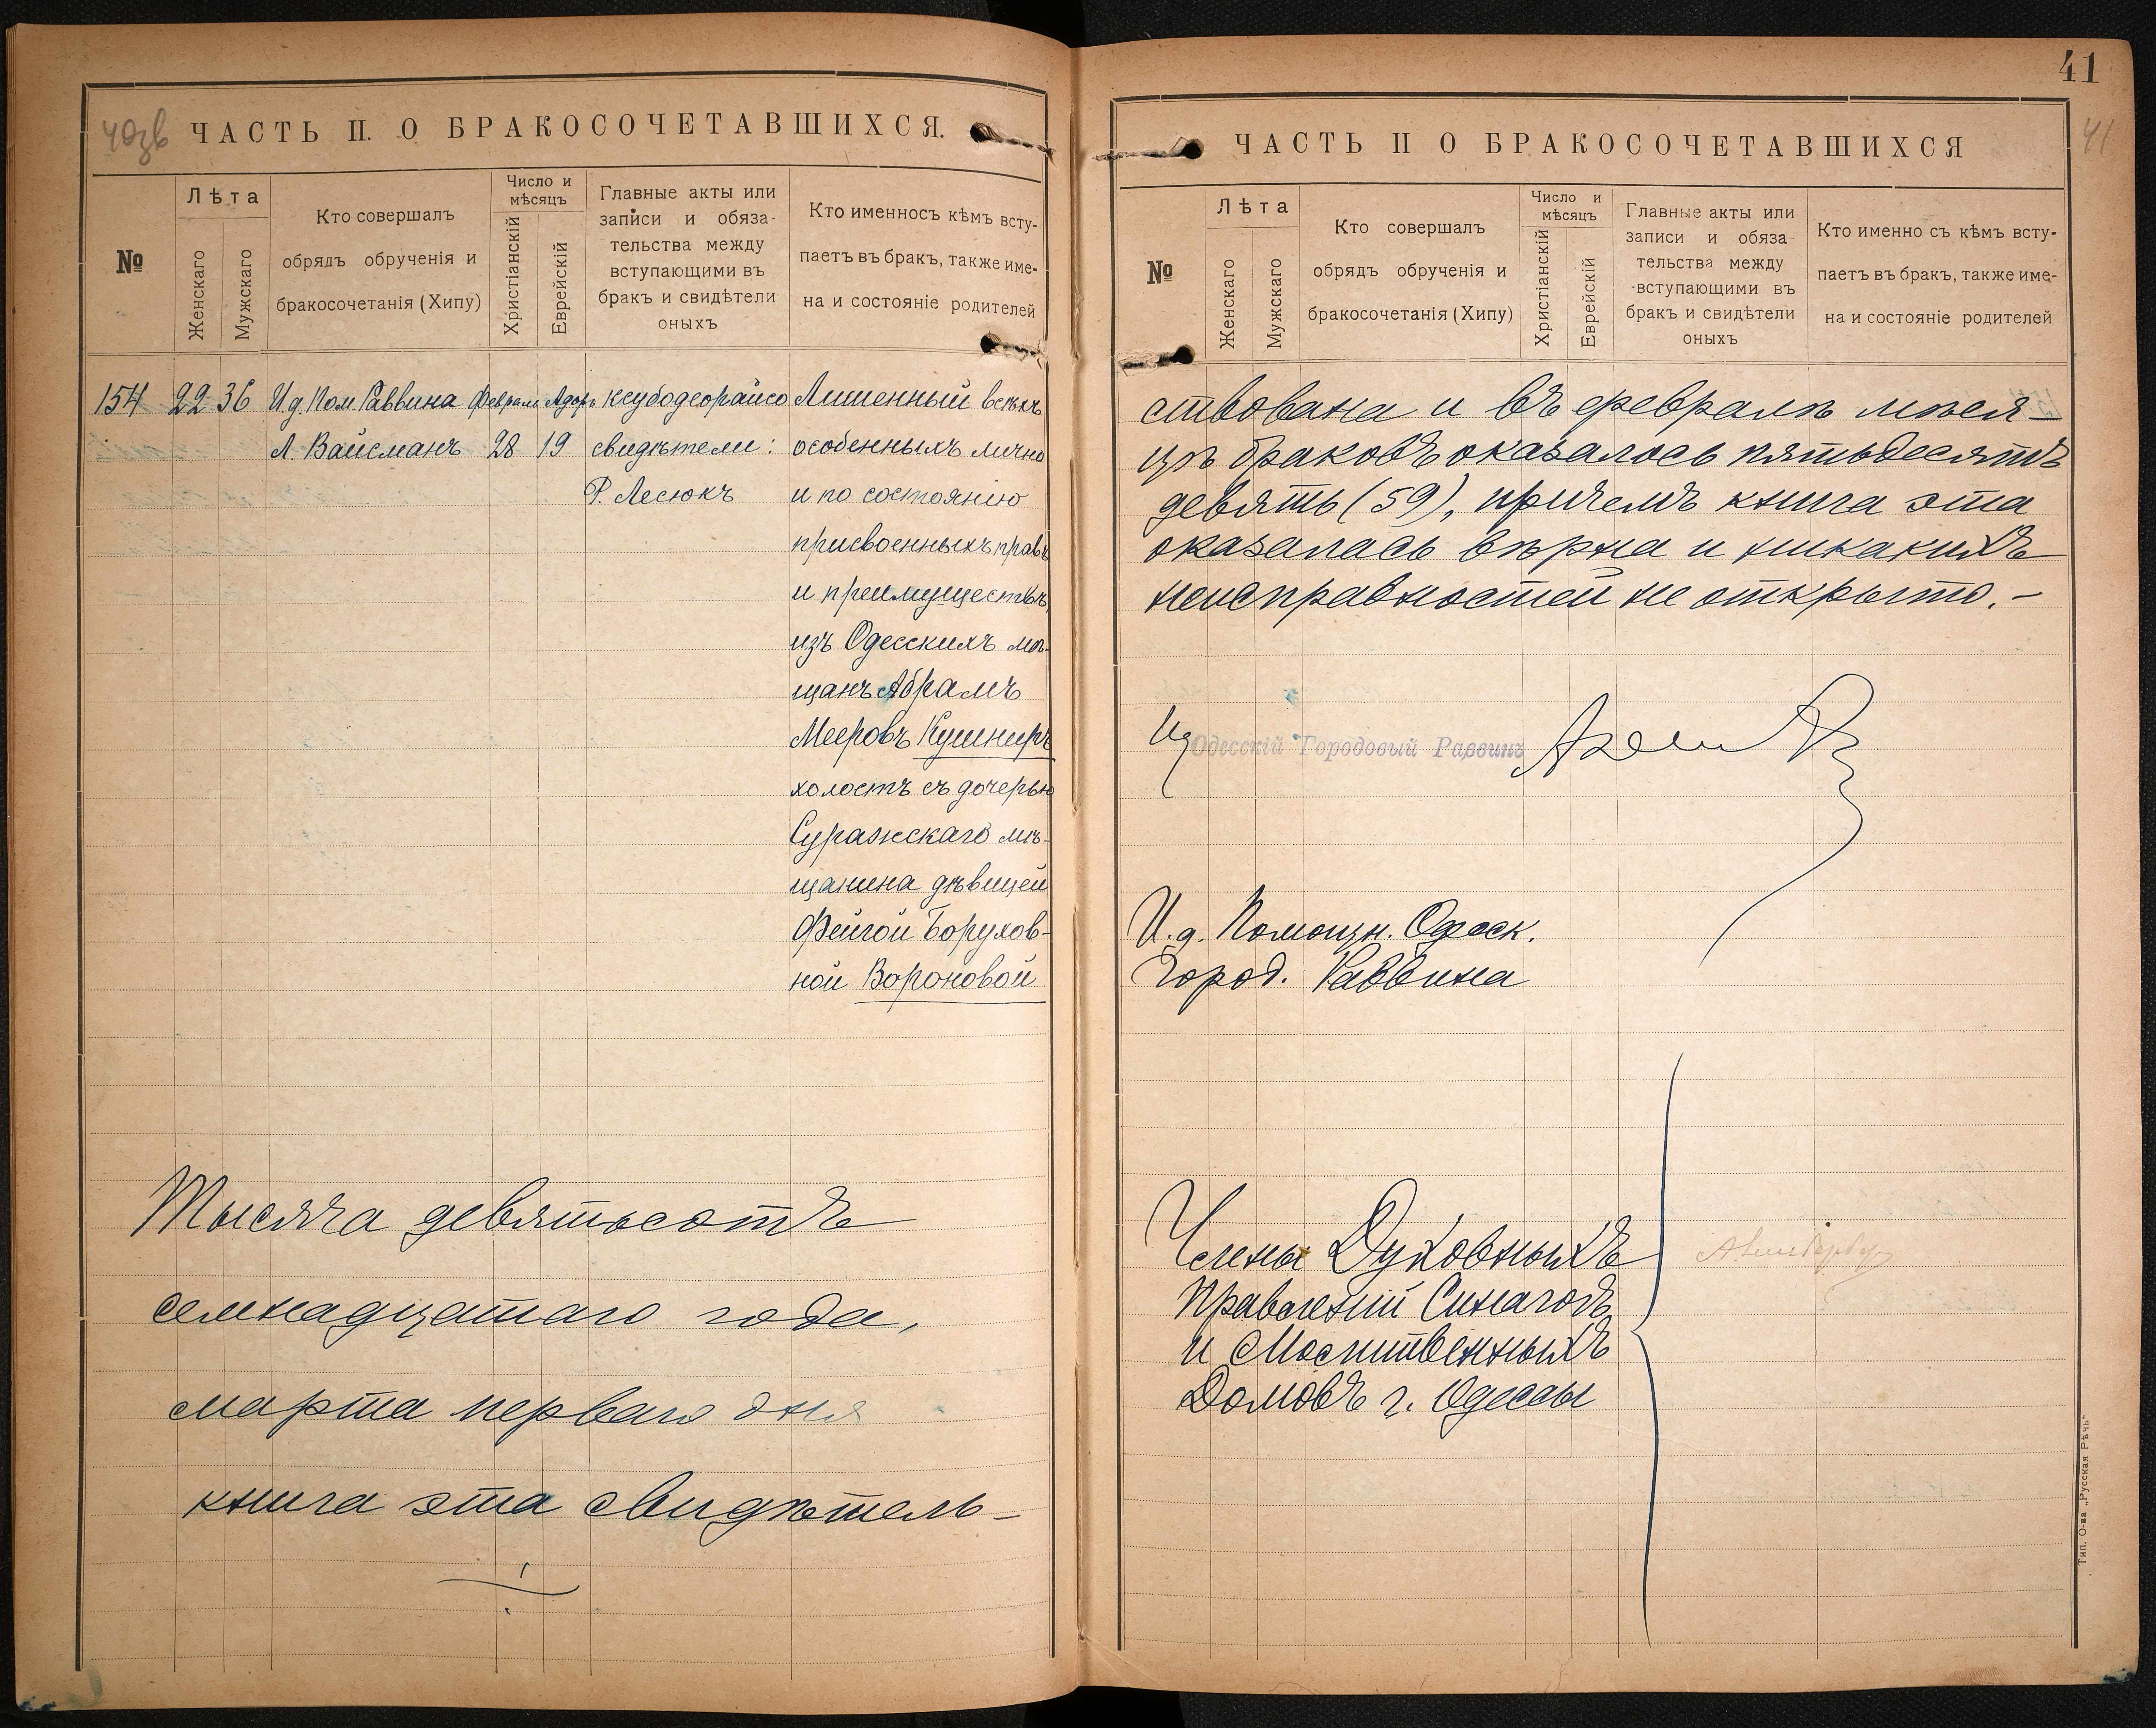 40зв
ЧАСТЬ II. О БРАКОСОЧЕТАВШИХСЯ.
№
Лѣта
Женскаго
Мужскаго
Кто совершалъ
обрядъ обрученія и
бракосочетанія (Хипу)
Число и
мѣсяцъ
Христіанскій
Еврейскій
Главные акты или
записи и обяза-
тельства между
вступающими въ
бракъ и свидѣтели
оныхъ
Кто именносъ кѣмъ всту-
паетъ въ бракъ, также име-
на и состояніе родителей
154 22 36 И.д. Пом. Раввина Феврал Адоръ ксубодеорайсо Лишенный всѣхъ
Л. Вайсманъ 28 19 свидѣтели: особенныхъ лично
Р. Лесюкъ и по состоянію
присвоенныхъ правъ
и преимуществъ,
изъ Одесскихъ мѣ-
щанъ Абрамъ
Мееровъ Кушниръ
холостъ съ дочерью
Суражскаго мѣ-
щанина дѣвицей
Фейгой Борухов-
ной Вороновой
Тысяча девятьсотъ
семнадцатаго года,
марта перваго дня
книга эта свидѣтель-
41
41
ЧАСТЬ II О БРАКОСОЧЕТАВШИХСЯ
№
Лѣта
Женскаго
Мужскаго
Кто совершалъ
обрядъ обрученія и
бракосочетанія (Хипу)
Число и
мѣсяцъ
Христіанскій
Еврейскій
Главные акты или
записи и обяза
тельства между
вступающими въ
бракъ и свидѣтели
оныхъ
Кто именно съ кѣмъ всту-
паетъ въ бракъ, также име-
на и состояніе родителей
ствована и въ февралѣ мѣся-
цѣ браковъ оказалось пятьдесятъ
девять (59), причемъ книга эта
оказалась вѣрна и никакихъ
неисправностей не открыто.-
Ид Одесскій Городовый Раввинъ
И.д. Помощн. Одесск.
Город. Раввина
Члены Духовныхъ
Правленій Синагогъ
и Молитвенныхъ
Домовъ г. Одессы
Тип. О-ва „Русская Рѣчь"